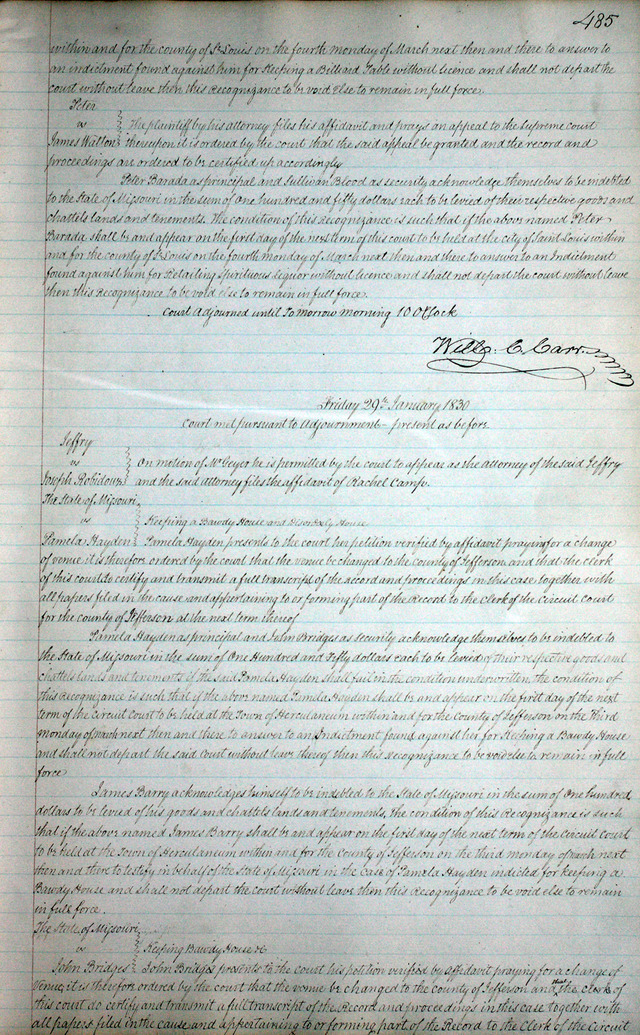 485
within and for the county of St Louis on the fourth monday of March next then and there to answer to
an indictment found against him for Keeping a Billiard Table without licence and shall not depart the
court without leave then this Recognizance to be void Else to remain in full force.
Peter
vs The plaintiff by his attorney files his affidavit and prays an appeal to the Supreme court
James Walton thereupon it is ordered by the court that the said appeal be granted and the record and
proceedings are ordered to be certified up accordingly
Peter Barada as principal and Sullivan Blood as security acknowledge themselves to be indebted
to the State of Missouri in the sum of one hundred and fifty dollars each to be levied of their respective goods and
chattels lands and tenements. The condition of this Recognizance is such that if the above named Peter
Barada shall be and appear on the first day of the next term of this court to be held at the city of Saint Louis within
and for the county of St Louis on the fourth monday of March next then and there to answer to an Indictment
found against him for Retailing Spirituous liquor without licence and shall not depart the court without leave
then this Recognizance to be void else to remain in full force.
Court Adjourned until Tomorrow morning 10 OClock
Will C. Carr
Friday 29th January 1830
Court met pursuant to adjournment - present as before
Jeffry
vs On motion of Mr Geyer he is permitted by the court to appear as the attorney of the said Jeffry
Joseph Robidoux and the said attorney files the affidavit of Rachel Camp.
The State of Missouri
vs Keeping a Bawdy House and Disorderly House
Pamela Hayden Pamela Hayden presents to the court her petition verified by affidavit praying for a change
of venue it is therefore ordered by the court that the venue be changed to the county of Jefferson and that the clerk
of this court do certify and transmit a full transcript of the record and proceedings in this case together with
all papers filed in the cause and appertaining to or forming part of the Record to the Clerk of the Circuit Court
for the county of Jefferson at the next term thereof
Pamela Hayden as principal and John Bridges as security acknowledge themselves to be indebted to
the State of Missouri in the sum of One Hundred and Fifty dollars each to be levied of their respective goods and
chattels lands and tenements if the said Pamela Hayden shall fail in the condition underwritten the condition of
this Recognizance is such that if the above named Pamela Hayden shall be and appear on the first day of the next
term of the circuit court to be held at the Town of Herculaneum within and for the county of Jefferson on the third
monday of March next then and there to answer to an Indictment found against her for Keeping a Bawdy House
and shall not depart the said Court without leave thereof then this Recognizance to be void else to remain in full
force
James Barry acknowledges himself to be indebted to the State of Missouri in the sum of One hundred
dollars to be levied of his goods and chattels lands and tenements, the condition of this Recognizance is such
that if the above named James Barry shall be and appear on the first day of the next term of the Circuit Court
to be held at the Town of Herculaneum within and for the County of Jefferson on the third monday of March next
then and there to testify in behalf of the State of Missouri in the case of Pamela Hayden indicted for Keeping a
Bawdy House and shall not depart the court without leave then this Recognizance to be void else to remain
in full force.
The State of Missouri
vs Keeping Bawdy House &c
John Bridges John Bridges presents to the court his petition verified by affidavit praying for a change of
Venue, it is therefore ordered by the court that the venue be changed to the county of Jefferson and that the clerk of
this court do certify and transmit a full transcript of the Record and proceedings in this case together with
all papers filed in the cause and appertaining to or forming part of the Record to the Clerk of the Circuit